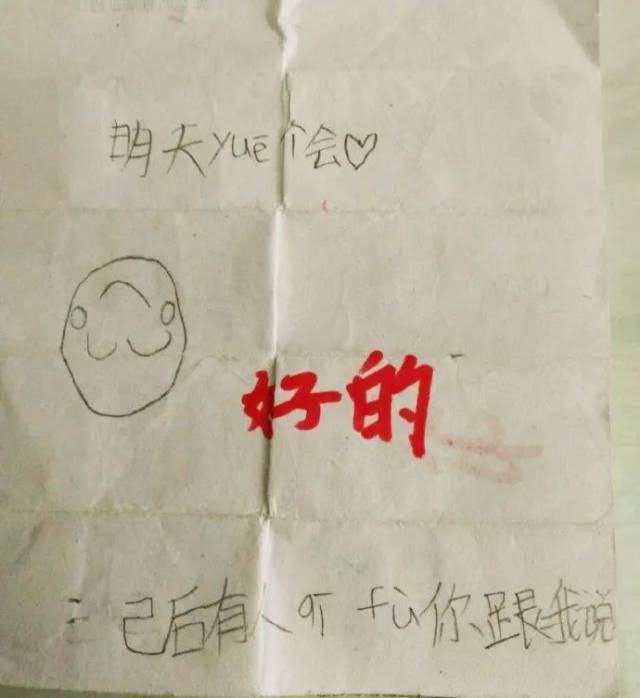 明天yuē个会♡
好的
二 己后有人qī fù你跟我说